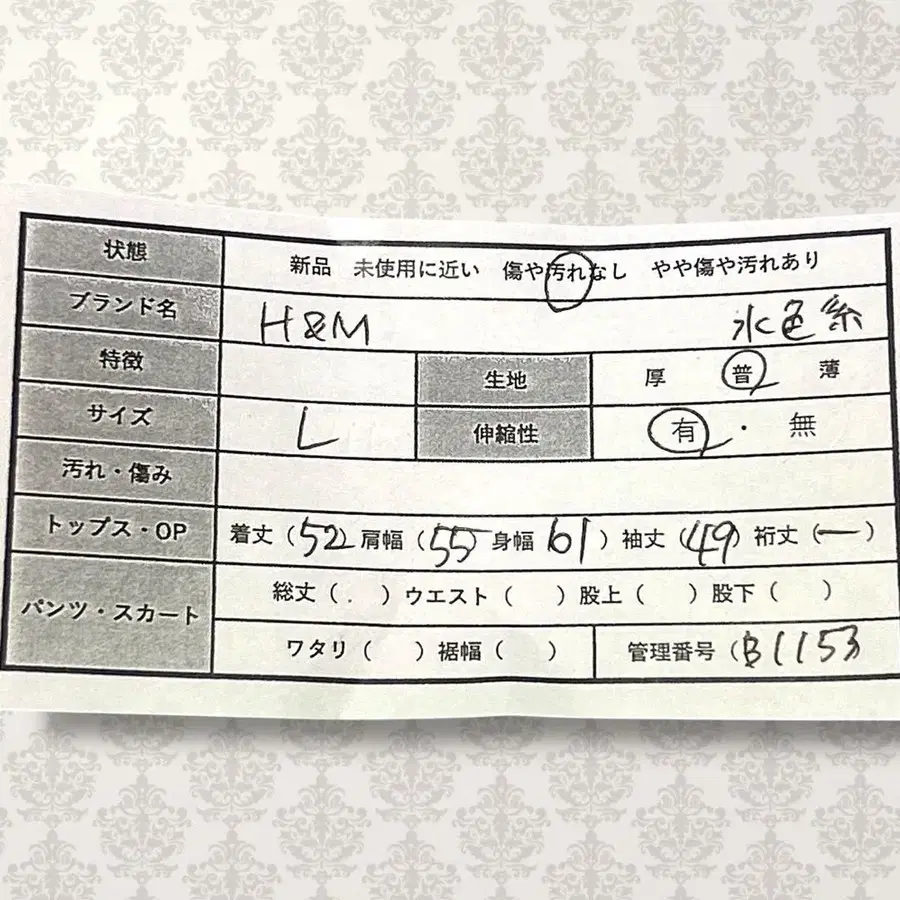 状態 新品 未使用に近い 傷や汚れなし やや傷や汚れあり
ブランド名 H&M 水色系
特徴 生地 厚 普 薄
サイズ L 伸縮性 有 ・ 無
汚れ・傷み
トップス・OP 着丈（52 肩幅（55 身幅 61）袖丈（49）裄丈（ー）
パンツ・スカート 総丈（．）ウエスト（ ）股上（ ）股下（ ）
ワタリ（ ）裾幅（ ） 管理番号（B1153